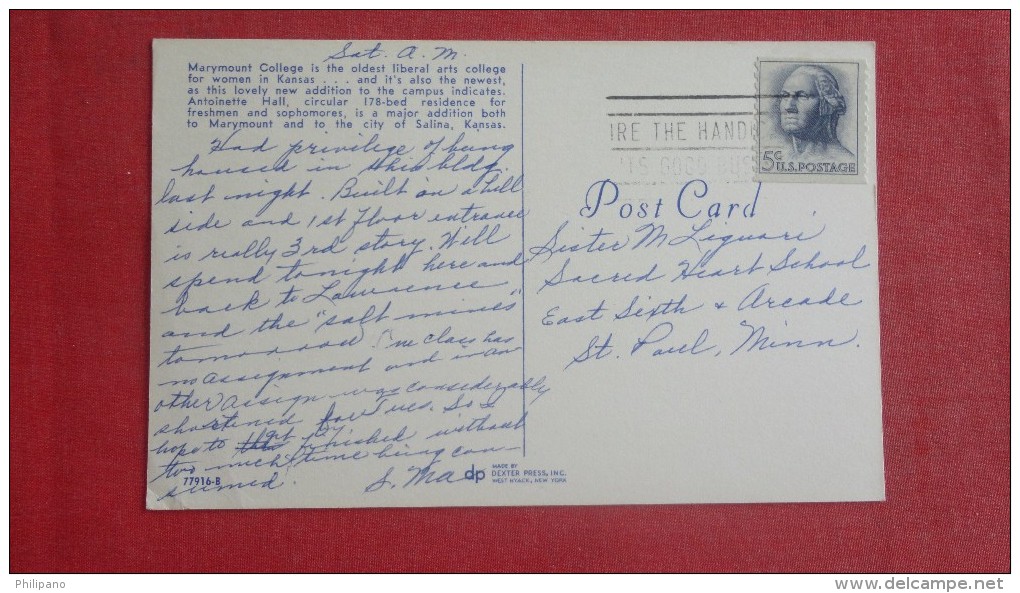 Sat. A. M.
Marymount College is the oldest liberal arts college
for women in Kansas . . . and it's also the newest,
as this lovely new addition to the campus indicates.
Antoinette Hall, circular 178-bed residence for
freshmen and sophomores, is a major addition both
to Marymount and to the city of Salina, Kansas.
Had privilege of being
housed in this bldg.
last night. Built on a hill
side and 1st floor entrance
is really 3rd story. Will
spend tonight here and
back to Lawrence
and the "salt mines"
tomorrow. One class has
no assignment and in an
other assign. was considerably
shortened for Tues. So I
hope to get finished without
too much time being con-
sumed.
S. Ma
77916-B
dp
MADE BY
DEXTER PRESS, INC.
WEST NYACK, NEW YORK
IRE THE HANDI
'TIS GOOD BUS
5¢
U.S. POSTAGE
Post Card
Sister M Liguori
Sacred Heart School
East Sixth & Arcade
St. Paul, Minn.
Philipano
www.delcampe.net